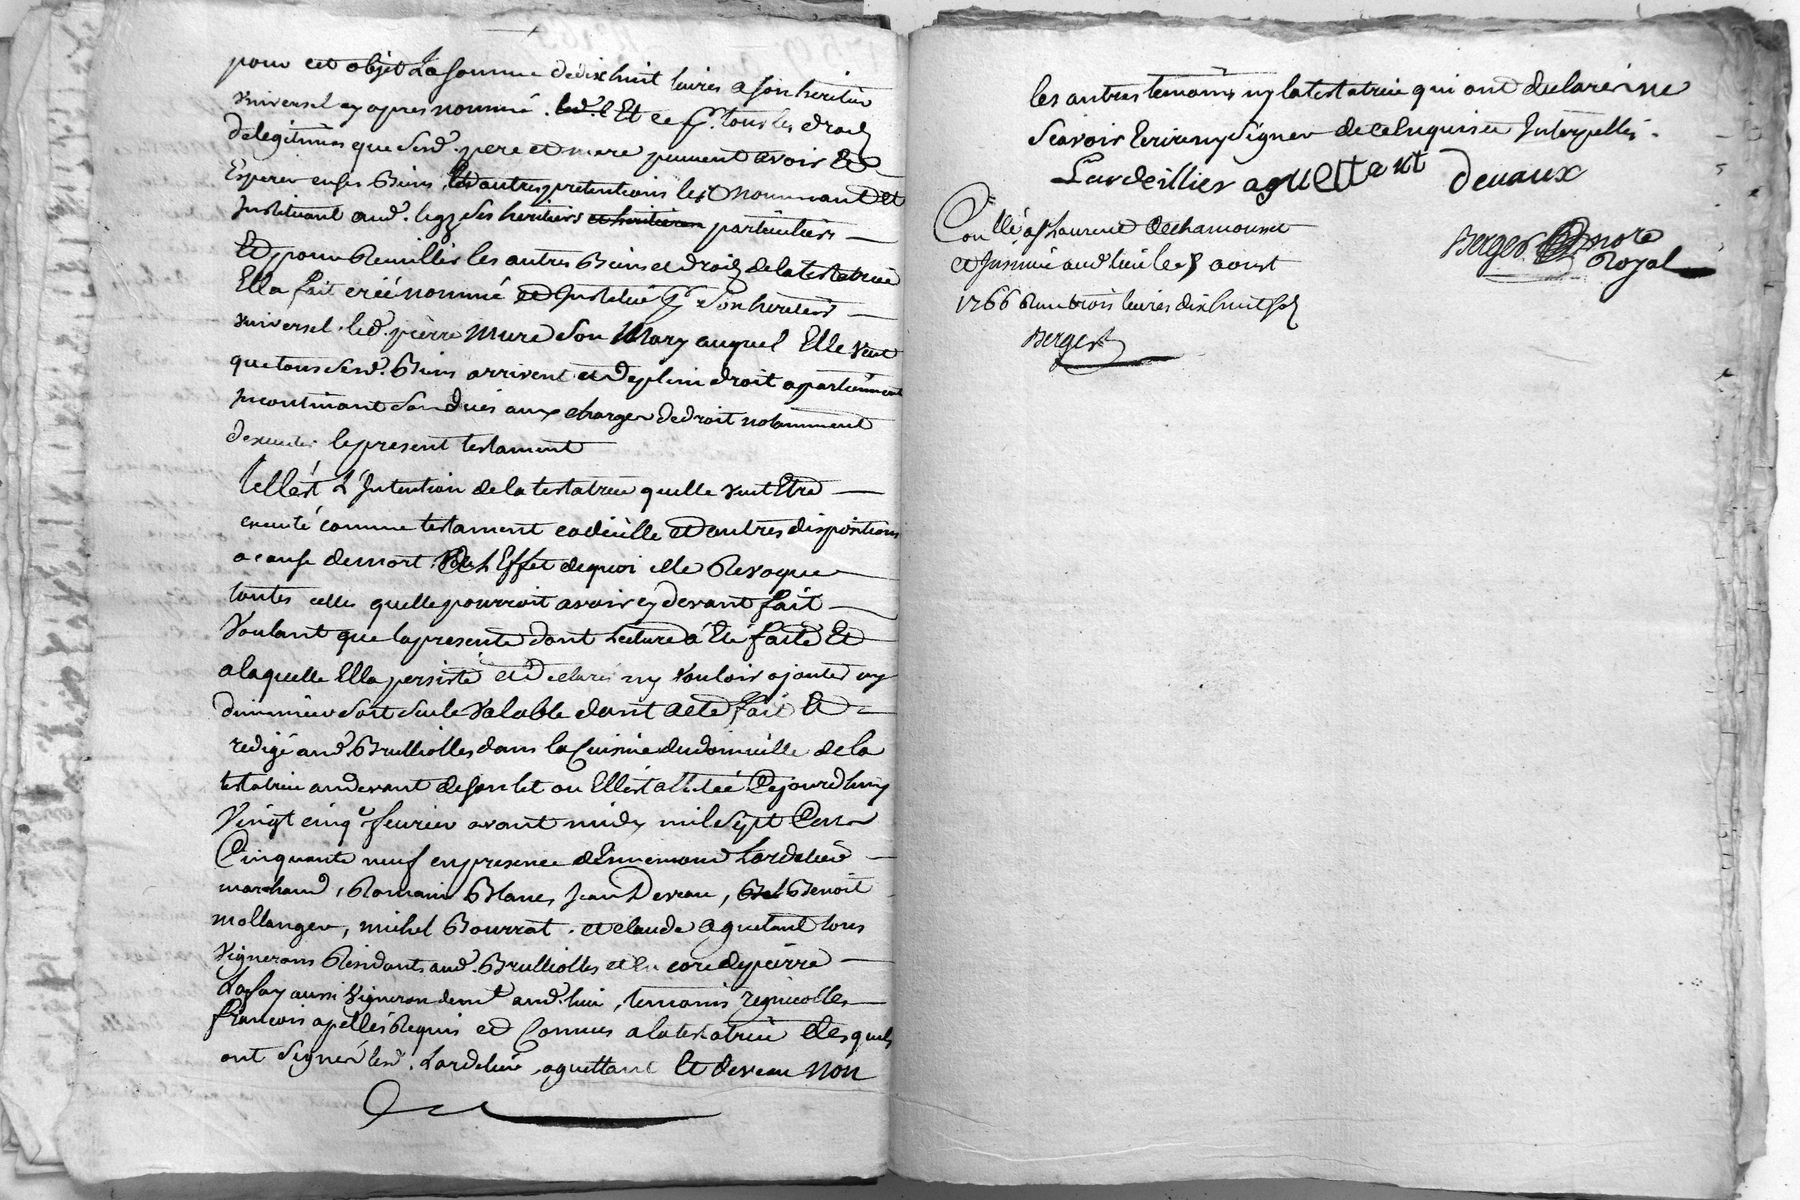 pour cet objet La somme de dix huit livres a son heritier
universel cy apres nommé. Et ce p.r tous les droits
de legitimes que sesd. pere et mere peuvent avoir Et
Esperer en ses Biens, et autres pretentions les nommant et
Instituant aud. legz ses heritiers et heritieres particuliers
Et pour Recuillir les autres Biens et droits de la testatrice
Ella fait créé nommé et Institué p.r Son heritier
universel led. pierre Mure Son Mary auquel Elle veut
que tous sesd. Biens arrivent et de plein droit apartiennent
Incontinant Son decés aux charges de droit notamment
d'executer le present testament
Tell'est L'Intention de la testatrice quelle veut Etre
executé comme testament codicille et autres dispositions
a cause de mort. A L'Effet de quoi elle Revoque
toutes celles quelle pourroit avoir cy devant fait
Voulant que la presente dont Lecture a Eté faite Et
a laquelle Ella persisté et declaré ny vouloir ajouter ny
diminuer soit seule valable dont acte fait Et
redigé aud. Brulliolles dans la Cuisine du domicille de la
testatrice au devant de son lit ou Ell'est allitée Cejourd'huy
Vingt cinq fevrier avant midy mil Sept Cent
Cinquante neuf en presence d'Ennemond Lardelier
marchand, Romain Blanc, Jean Deveau, Benoit
mollanger, michel Bourrat, et claude aguetant tous
vignerons Residants aud. Brulliolles et Encore de pierre
Lafay aussi vigneron dem.t aud. lieu, temoins regnicolles
françois apellés Requis et Connus a la testatrice desquels
ont Signé lesd. Lardelier, aguettant Et deveau Non
les autres temoins ny la testatrice qui ont declaré ne
Scavoir Ecrire ny Signer de ce Enquis et Interpellés.
Lardeillier aguettant devaux
Berger Nore
Royal
Conllé a St Laurent de chamousset
et Insinué aud. lieu le 8 aoust
1766 Reçu trois livres dix huit sols
Berger